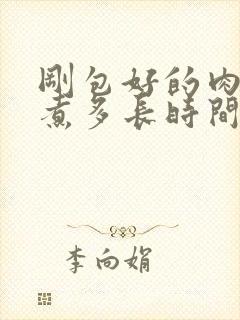 剛包好的肉
煮多長時間
李向娟